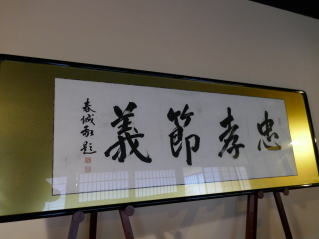 忠孝節義
春城敬題